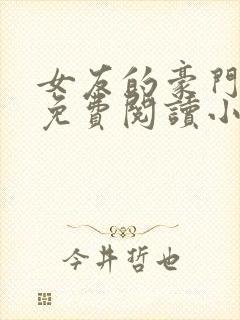 女友的豪門
免費閱讀小
今井哲也